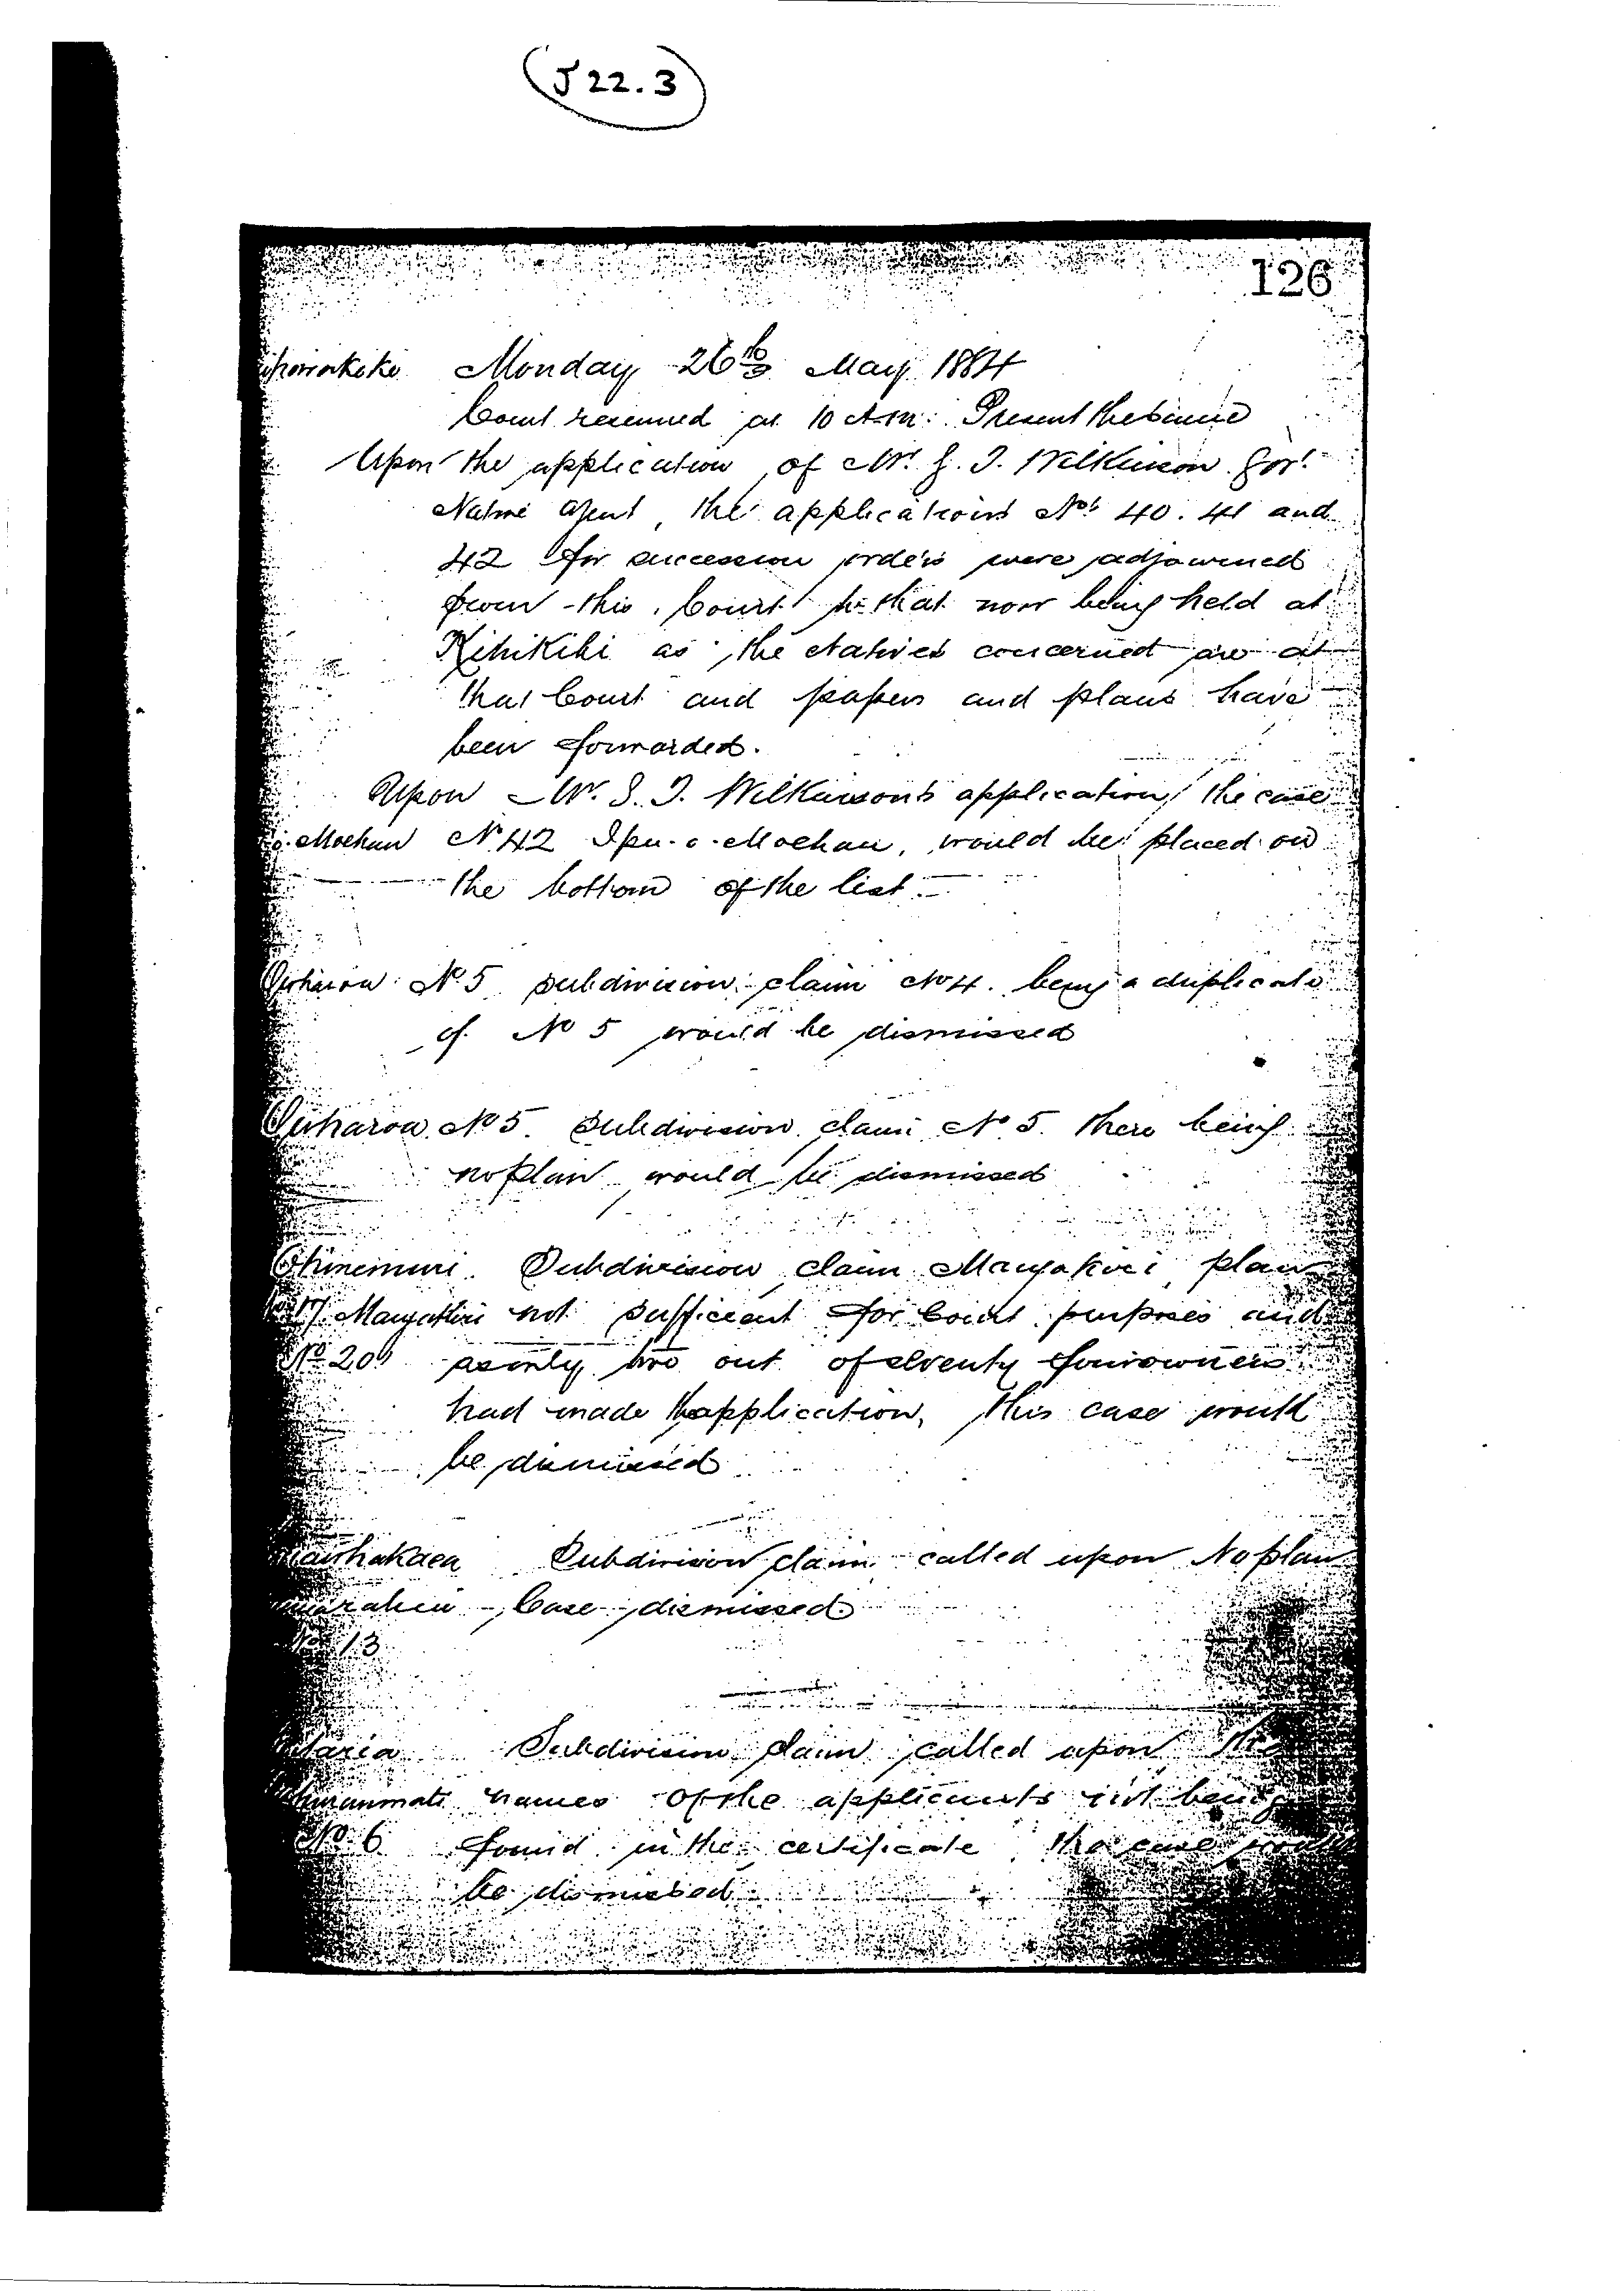 J 22.3
126
Monday 26th May 1884
Court resumed at 10 A.m: Present the same
Upon the application of Mr. G. T. Wilkinson Govt.
Native Agent, the applications Nos 40. 41 and
42 for succession orders were adjourned
from this Court to that now being held at
Kihikihi as the Natives concerned are at
that Court and papers and plans have
been forwarded.
Upon Mr. G. T. Wilkinson's application, the case
o. Moehau No 42 Ipu. o. Moehau, would be placed on
the bottom of the list.
No 5 subdivision claim No 4. being a duplicate
of No 5 would be dismissed
No 5. Subdivision claim No 5. there being
no plan would be dismissed
Ohinemuri. Subdivision claim Mangakiri plan
No 17 Mangakiri not sufficient for Court purposes and
No 20 as only two out of seventy four owners
had made the application, this case would
be dismissed
Subdivision claim called upon No plan
Case dismissed.
No 13
Subdivision claim called upon The
names of the applicants not being
No 6 found in the certificate the case would
be dismissed